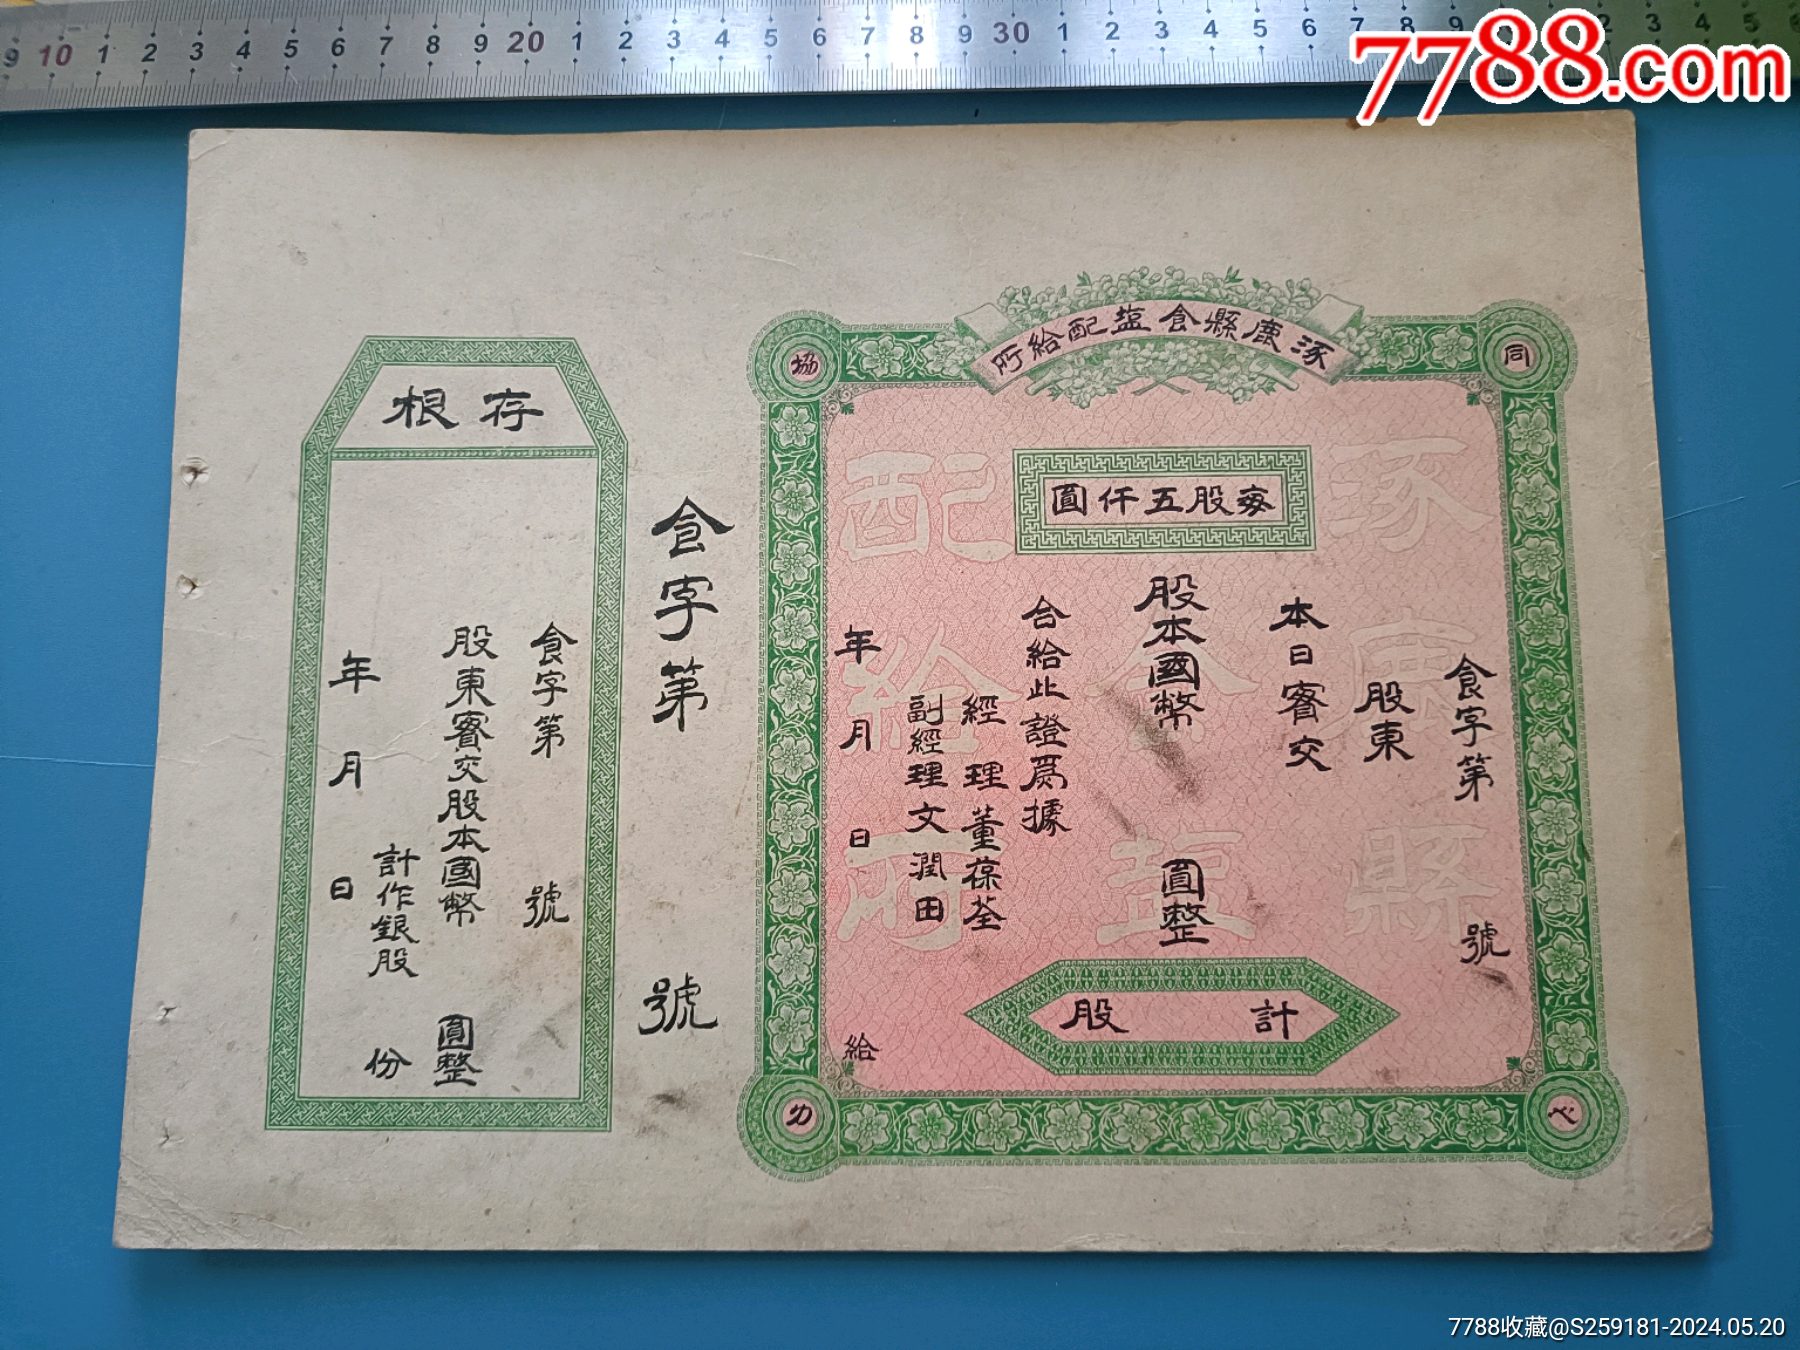 9 10 1 2 3 4 5 6 7 8 9 20 1 2 3 4 5 6 7 8 9 30 1 2 3 4 5 6 7 8 9
7788.com
涿鹿縣食盐配給所
同
協
心
力
每股五仟圓
涿鹿縣
食盐
配給所
食字第 號
股東
本日賓交
股本國幣 圓整
合給此證爲據
經理董葆荃
副經理文潤田
年月日給
計 股
食字第 號
存根
食字第 號
股東賓交股本國幣 圓整
計作銀股 份
年月日
7788收藏@S259181-2024.05.20